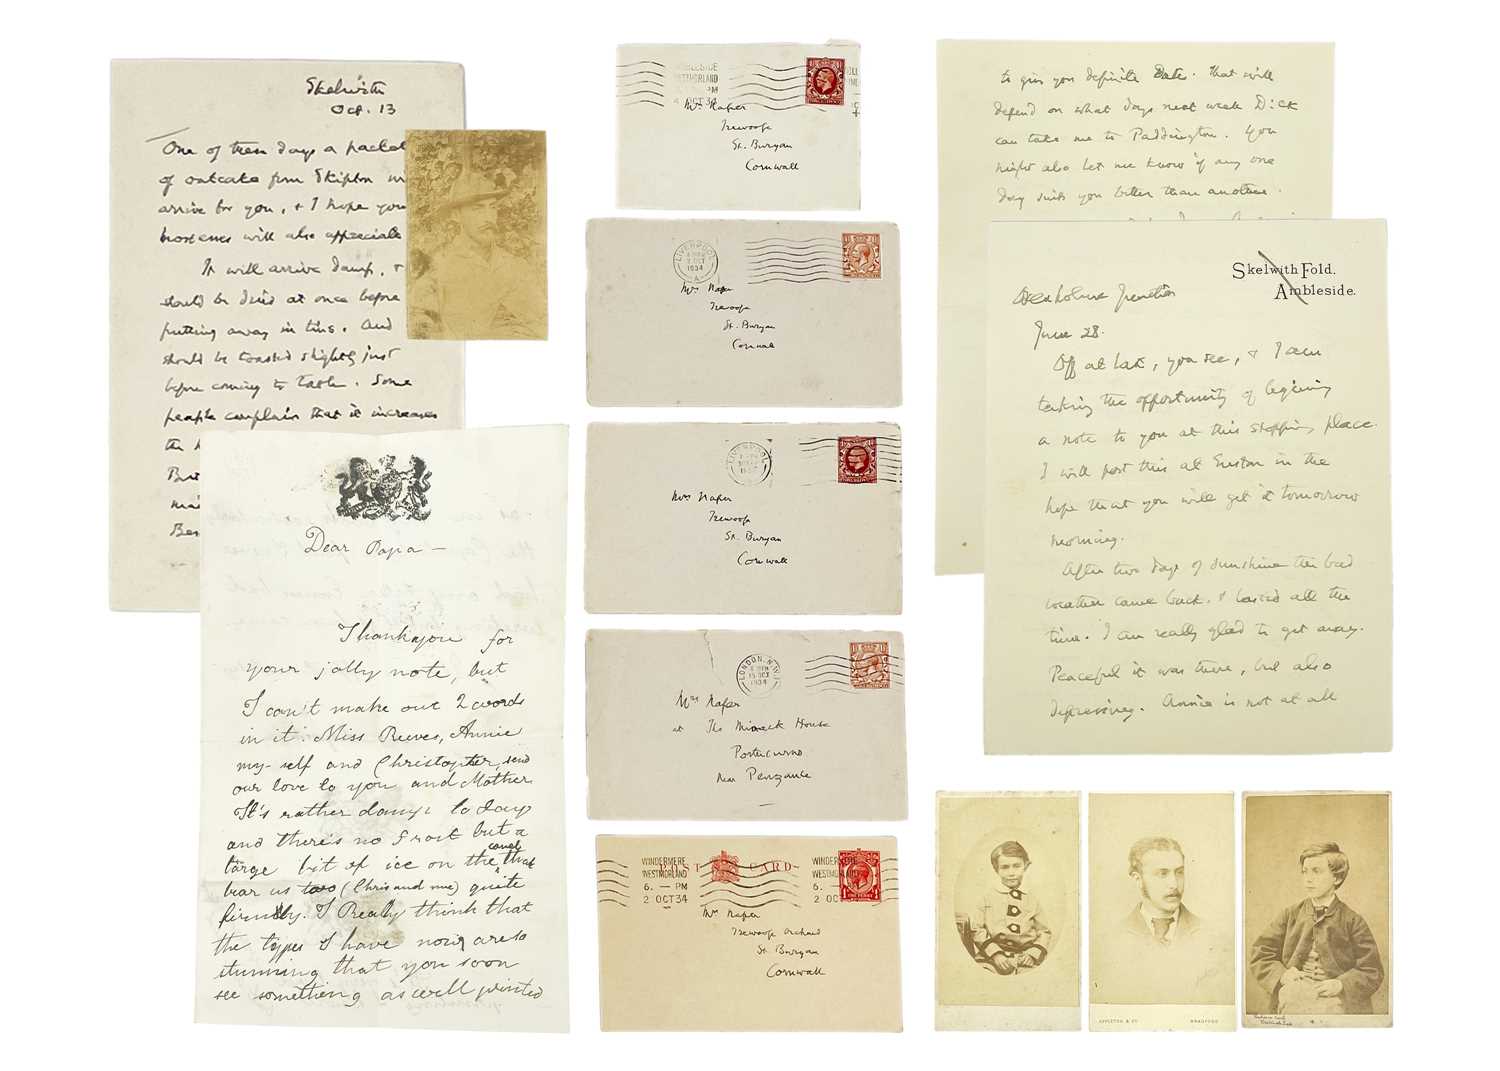 Skelwith
Oct. 13
One of these days a packet
of oatcake from Skipton
arrive for you, & I hope your
hostesses will also appreciate
It will arrive damp, &
should be dried at once before
putting away in tins. And
should be toasted slightly just
before coming to table. Some
people complain that it increases
the
But
Dear Papa —
Thank you for
your jolly note, but
I can't make out 2 words
in it. Miss Reeves, Annie
my-self and Christopher, send
our love to you and Mother
It's rather damp to day
and there's no frost but a
large bit of ice on the canal that
bear us too (Chris and me) quite
firmly. I Really think that
the types I have now are so
stunning that you soon
see something as well printed
WESTMORLAND
PM
4 OCT 34
Mrs Naper
Trewoofe
St. Buryan
Cornwall
LIVERPOOL
OCT
1934
A
Mrs Naper
Trewoofe
St. Buryan
Cornwall
LIVERPOOL
Mrs Naper
Trewoofe
St. Buryan
Cornwall
LONDON. N.W.1
15 OCT
1934
Mrs Naper
at The Minack House
Porthcurno
near Penzance
POST CARD
WINDERMERE
WESTMORLAND
6. — PM
2 OCT 34
WINDERMERE
WESTMORLAND
6. — PM
2 OC
Mrs Naper
Trewoofe Orchard
St. Buryan
Cornwall
to give you definite date. That will
depend on what days next week Dick
can take me to Paddington. You
might also let me know if any one
day suits you better than another.
Skelwith Fold.
Ambleside.
Oxenholme Junction
June 28.
Off at last, you see, & I am
taking the opportunity of beginning
a note to you at this stopping place.
I will post this at Euston in the
hope that you will get it tomorrow
morning.
After two days of sunshine the bad
weather came back, & lasted all the
time. I am really glad to get away.
Peaceful it was there, but also
depressing. Annie is not at all
APPLETON & CO. BRADFORD